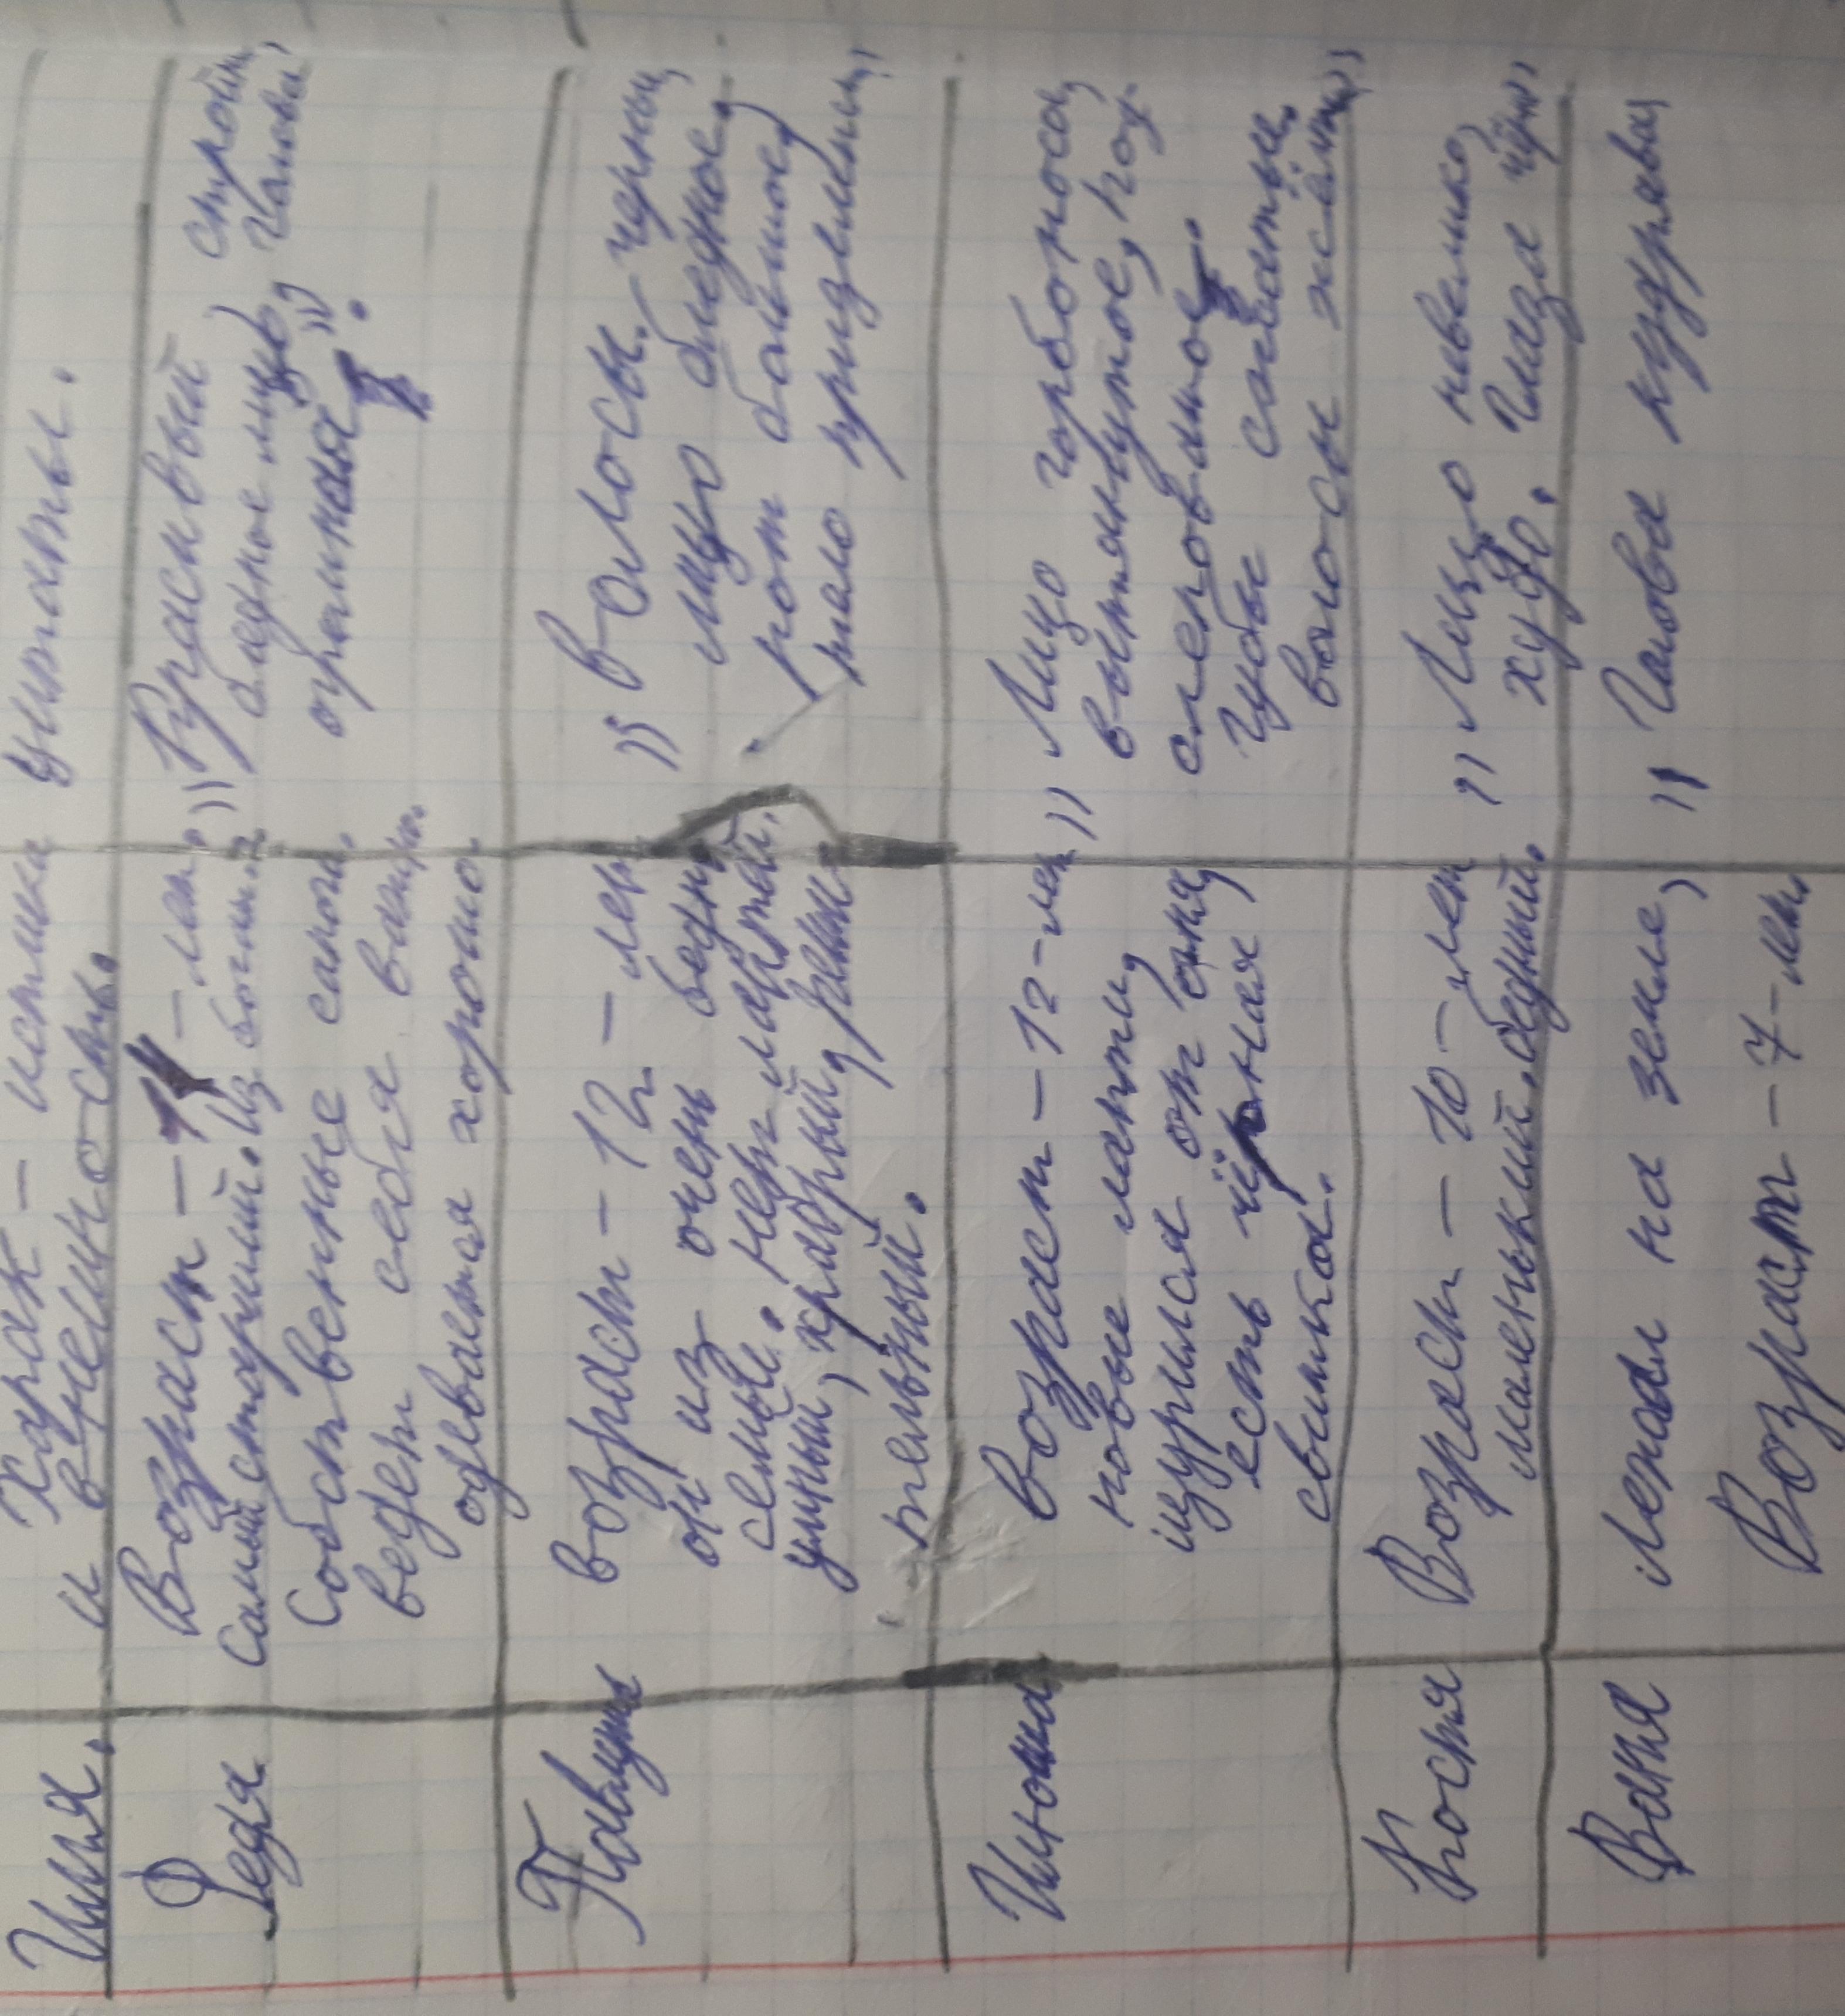 Имя.
Харак – истика
и внешность.
цитаты.
Федя
Возраст – 14 – лет.
Самый старший. Из богатой
Собственные сапоги.
ведёт себя важно.
одевается хорошо.
"Красивый, стройный,
бледное лицо, голова
огромная".
Павлуша
возраст – 12 – лет
он из очень бедной
семьи. Нет лаптей.
умный, храбрый, реши-
тельный.
"Волосы – черный,
лицо бледное,
рот большое,
тело приземлены,
Илюша
возраст – 12 – лет
новые лапти,
щурился от огня,
есть чёрная
свитка.
"Лицо горбоносое,
вытянутое, под-
слеповатое.
Губы сжатые.
волосы жёлты"
Костя
Возраст – 10 – лет
маленький. бедный.
"Лицо невелико,
худо. Глаза чёрн"
Ваня
Лежал на земле,
Возраст – 7 – лет.
"Голова кудрява,